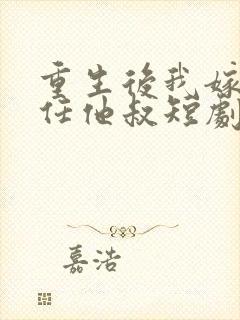 重生後我嫁
任他叔短劇
嘉浩